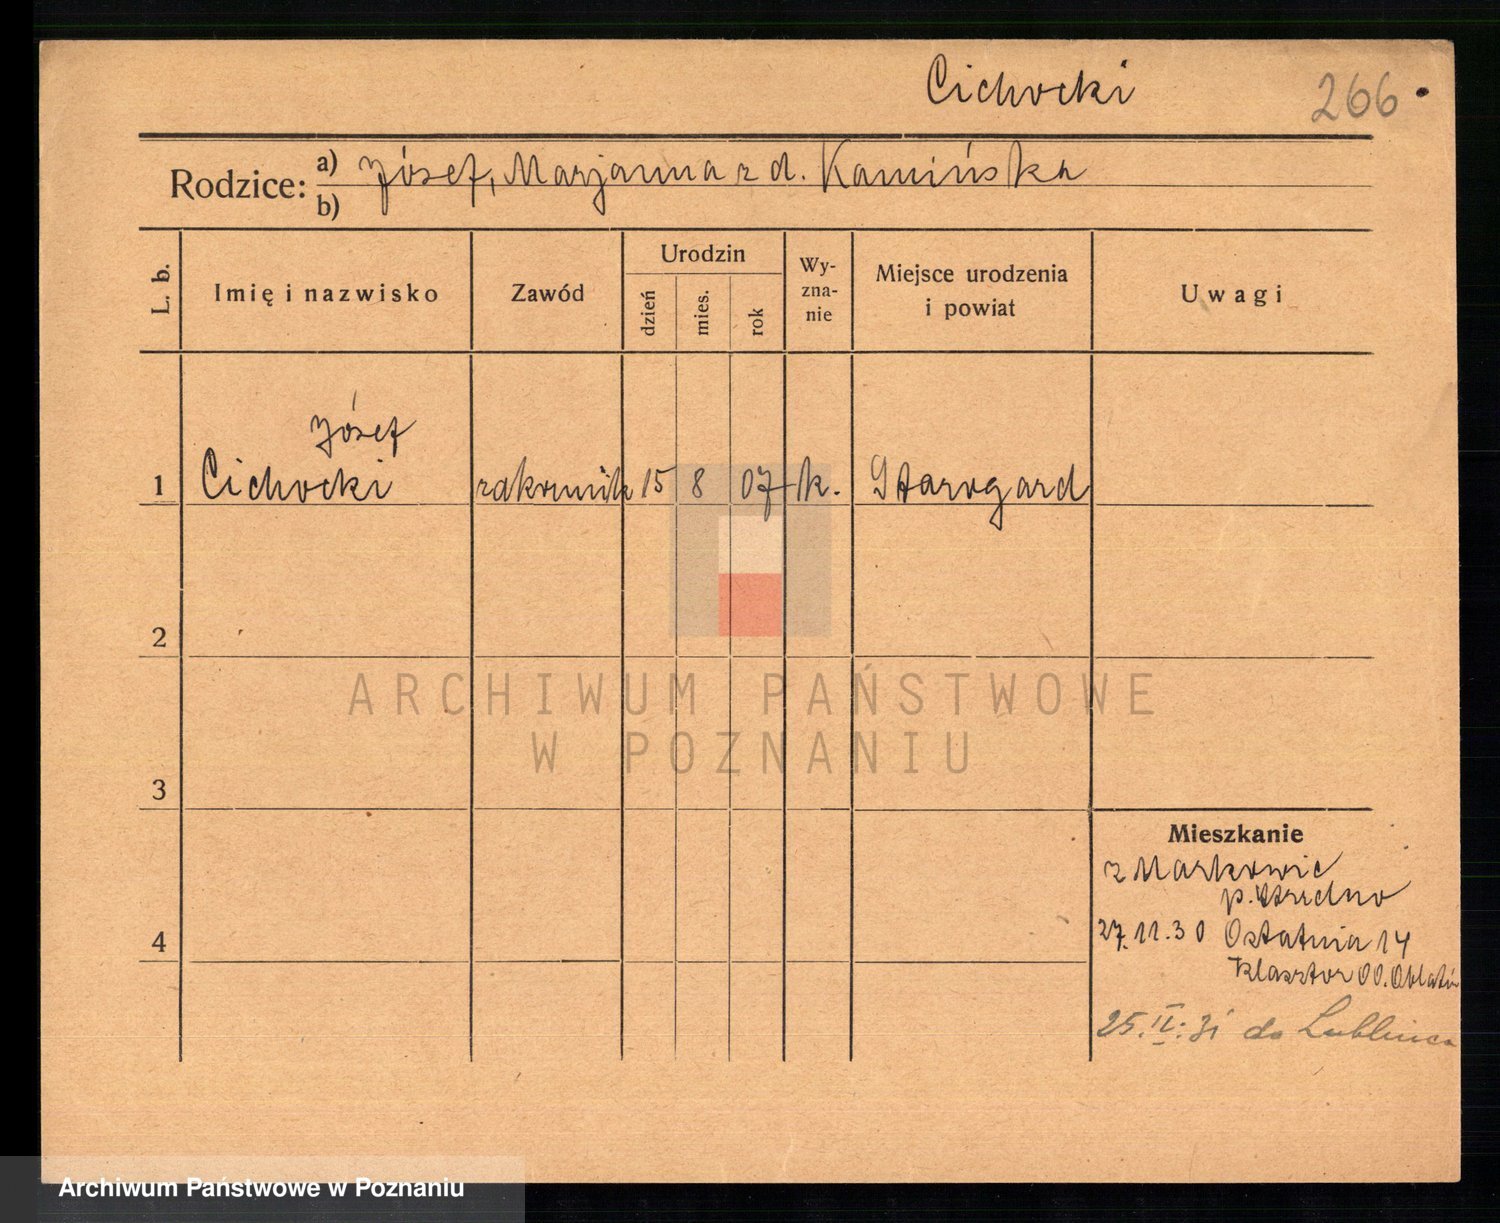 Cichocki
266
Rodzice: a) Józef, Marjanna z d. Kamińska
b)
L. b.
Imię i nazwisko
Zawód
Urodzin
dzień
mies.
rok
Wy-
zna-
nie
Miejsce urodzenia
i powiat
Uwagi
Józef
1 Cichocki zakonnik 15 8 07 k. Starogard
2
3
4
Mieszkanie
z Markowic
p.
27.11.30 Ostatnia 14
Klasztor OO. Oblatów
25.II.31 do Lublińca
ARCHIWUM PAŃSTWOWE
W POZNANIU
Archiwum Państwowe w Poznaniu